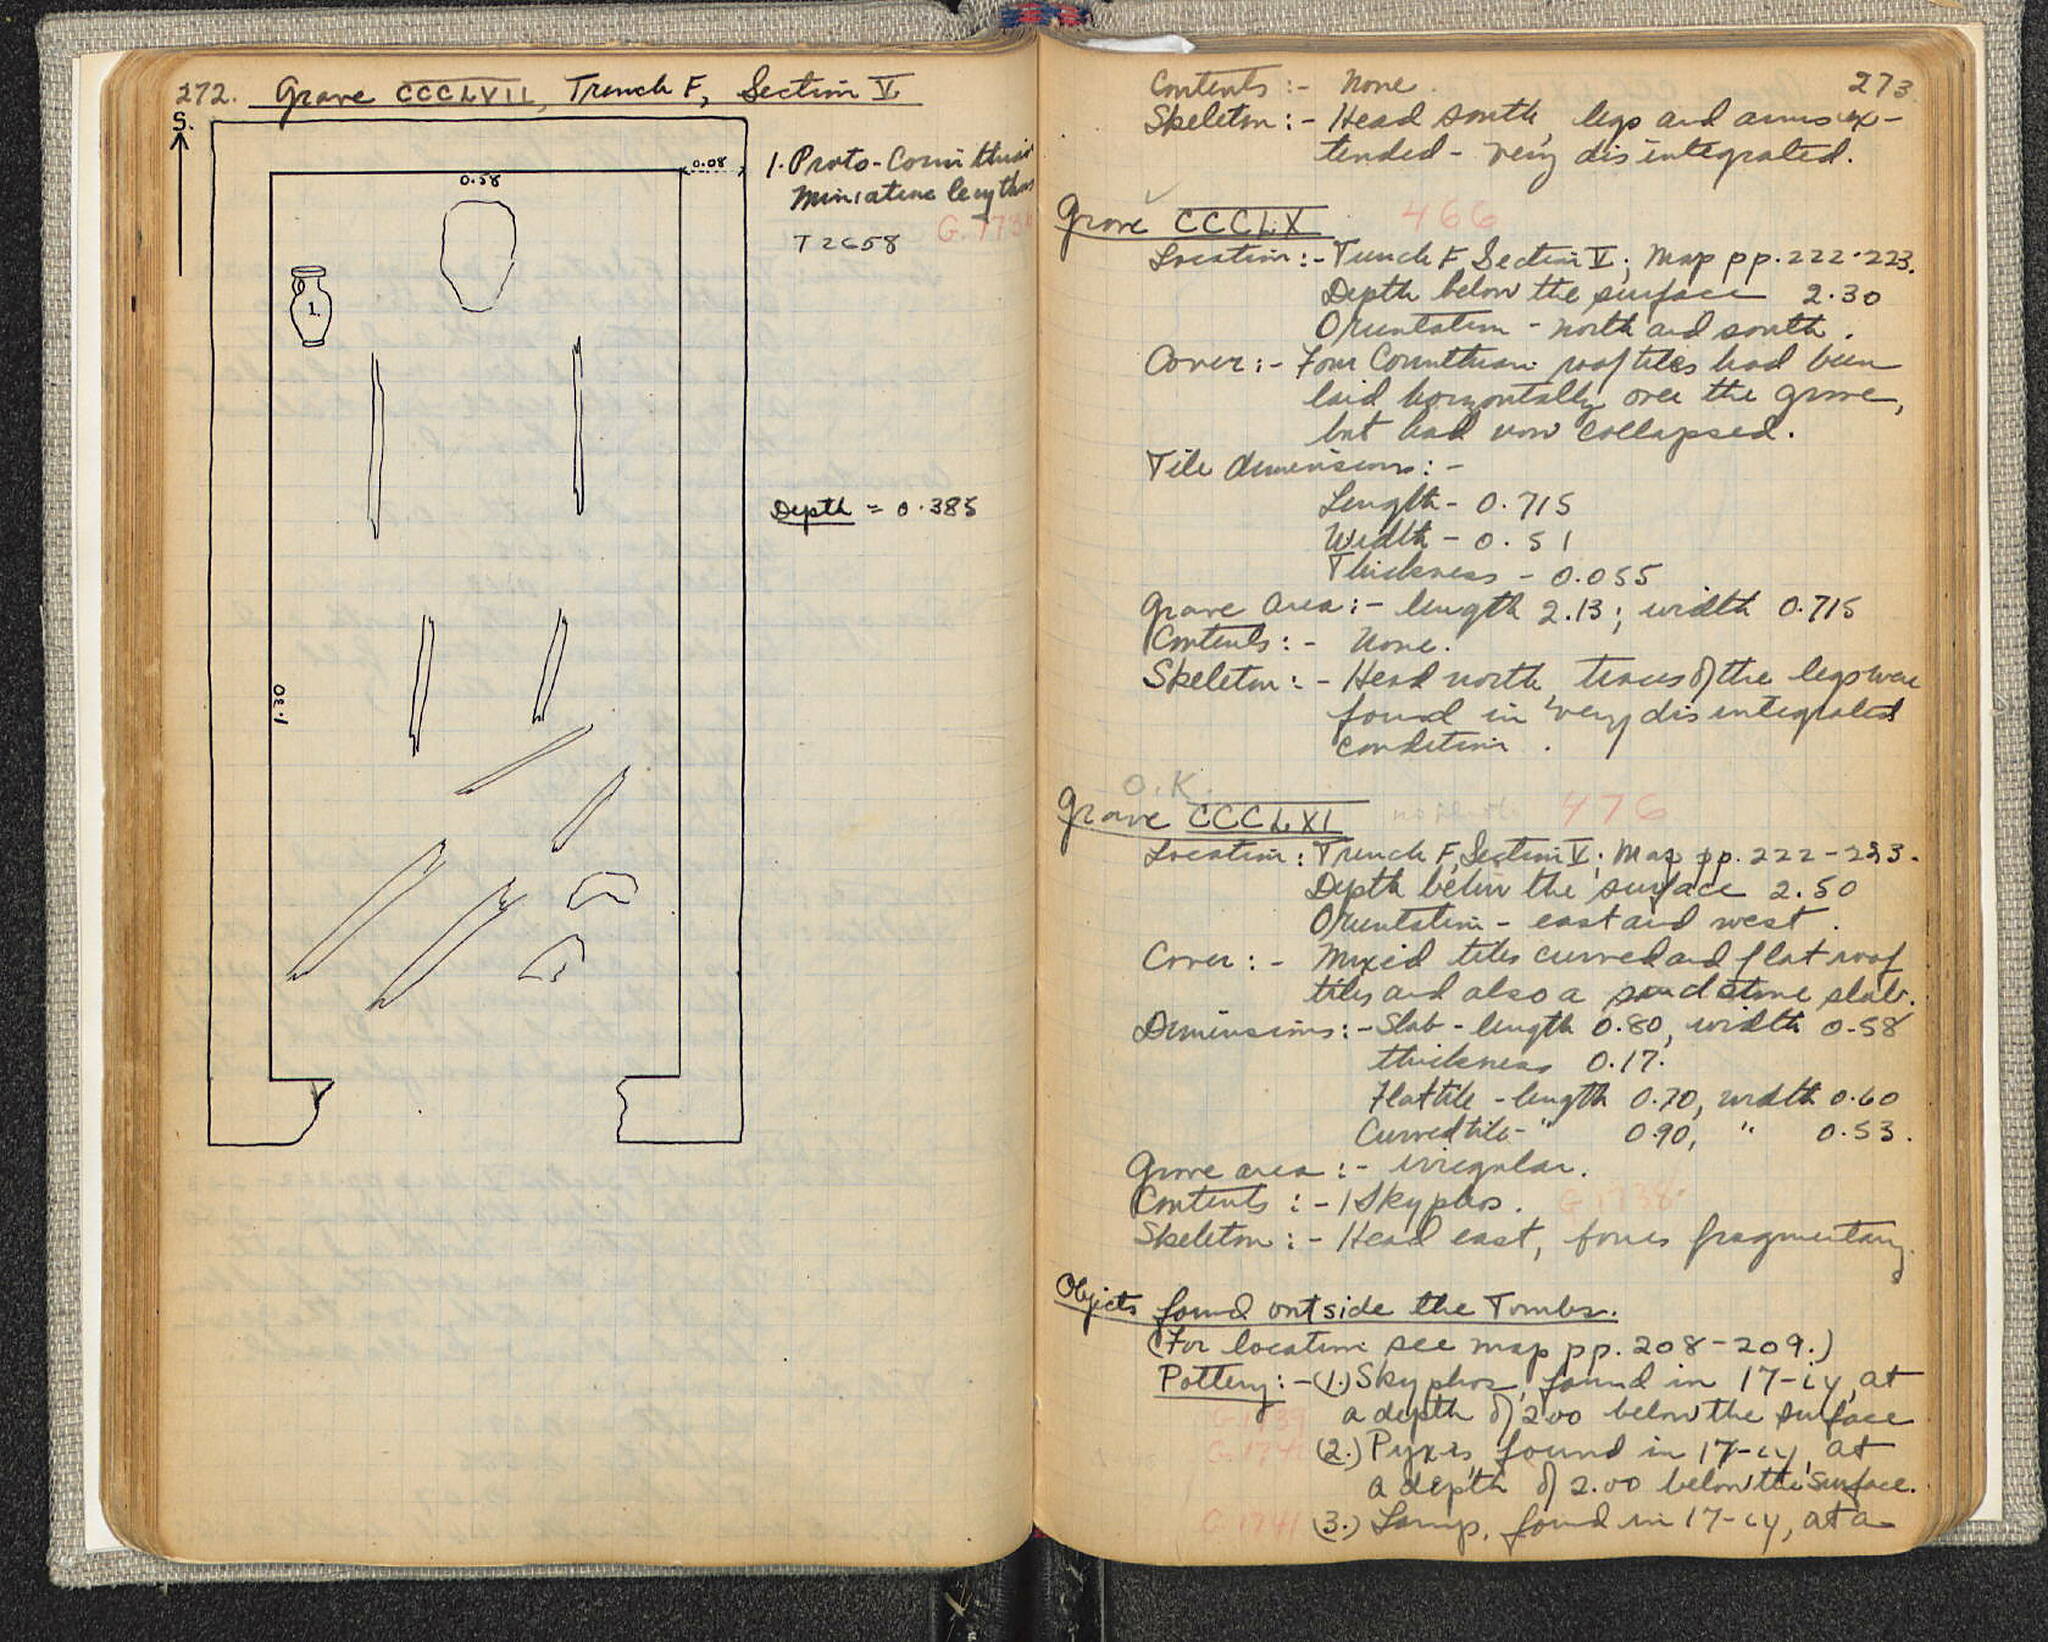 272. Grave CCCLVII, Trench F, Section V
S.
0.08
0.58
1. Proto-Corinthian
miniature lekythos
T 2658
1.
Depth = 0.385
1.30
273
Contents :- None.
Skeleton :- Head south, legs and arms ex-
tended - very disintegrated.
Grave CCCLX 466
Location :- Trench F, Section V; Map pp. 222-223.
Depth below the surface 2.30
Orientation - north and south.
Cover :- Four Corinthian roof tiles had been
laid horizontally over the grave,
but had now collapsed.
Tile dimensions :-
Length - 0.715
Width - 0.51
Thickness - 0.055
Grave area :- length 2.13; width 0.715
Contents :- None.
Skeleton :- Head north, traces of the legs were
found in very disintegrated
condition.
O.K.
Grave CCCLXI 476
Location : Trench F, Section V; Map pp. 222-223.
Depth below the surface 2.50
Orientation - east and west.
Cover :- Mixed tiles curved and flat roof
tiles and also a sandstone slab.
Dimensions :- Slab - length 0.80, width 0.58
thickness 0.17.
Flat tile - length 0.70, width 0.60
Curved tile - " 0.90, " 0.53.
Grave area :- irregular.
Contents :- 1 Skyphos. G 1738
Skeleton :- Head east, bones fragmentary.
Objects found outside the Tombs.
(For location see map pp. 208-209.)
Pottery :- (1.) Skyphos, found in 17-iy, at
G.1739 a depth of 2.00 below the surface
(2.) Pyxis, found in 17-iy, at
a depth of 2.00 below the surface.
G.1741 (3.) Lamp, found in 17-iy, at a